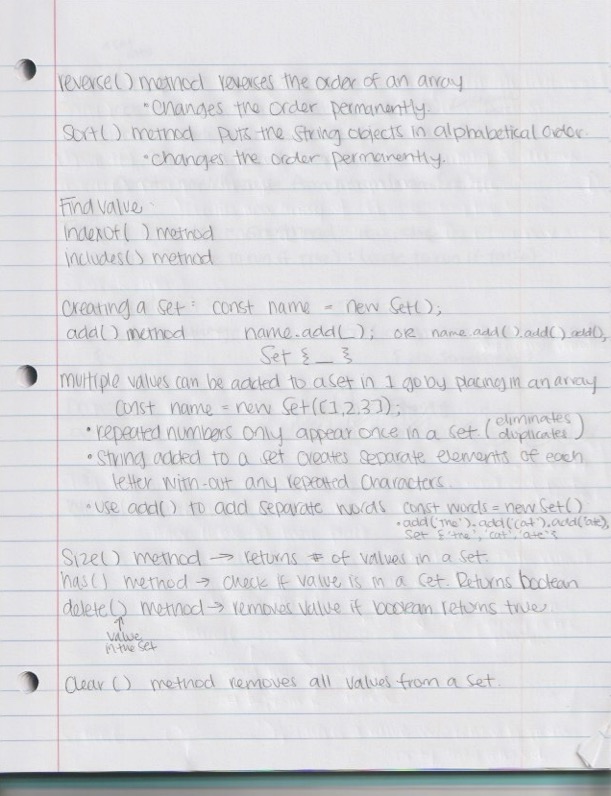 reverse() method reverses the order of an array
• Changes the order permanently.
Sort() method puts the string objects in alphabetical order.
• changes the order permanently.
Find value:
indexOf( ) method
includes() method
Creating a set: const name = new Set();
add() method name.add(_); OR name.add().add().add();
Set {_}
multiple values can be added to a set in 1 go by placing in an array
const name = new Set([1,2,3]);
• repeated numbers only appear once in a set (eliminates duplicates)
• String added to a set creates separate elements of each
letter with-out any repeated characters
• use add() to add separate words const words = new Set()
• add('the').add('cat').add('ate');
Set {'the', 'cat', 'ate'}
Size() method → returns # of values in a set.
has() method → check if value is in a set. Returns boolean
delete() method → removes value if boolean returns true.
↑
value
in the set
Clear () method removes all values from a set.